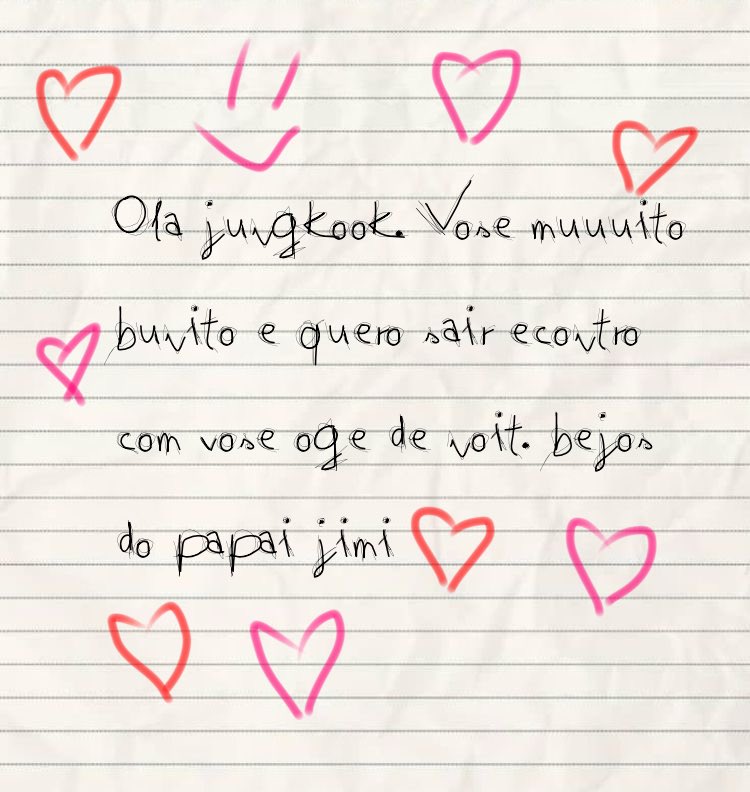 Ola jungkook. Vose muuuito
bunito e quero sair econtro
com vose oge de noit. bejos
do papai jimi